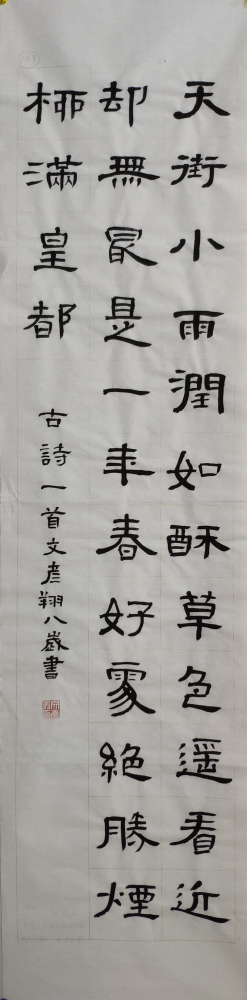 天街小雨潤如酥草色遥看近
却無最是一年春好處絕勝煙
柳滿皇都
古詩一首文彦翔八歲書